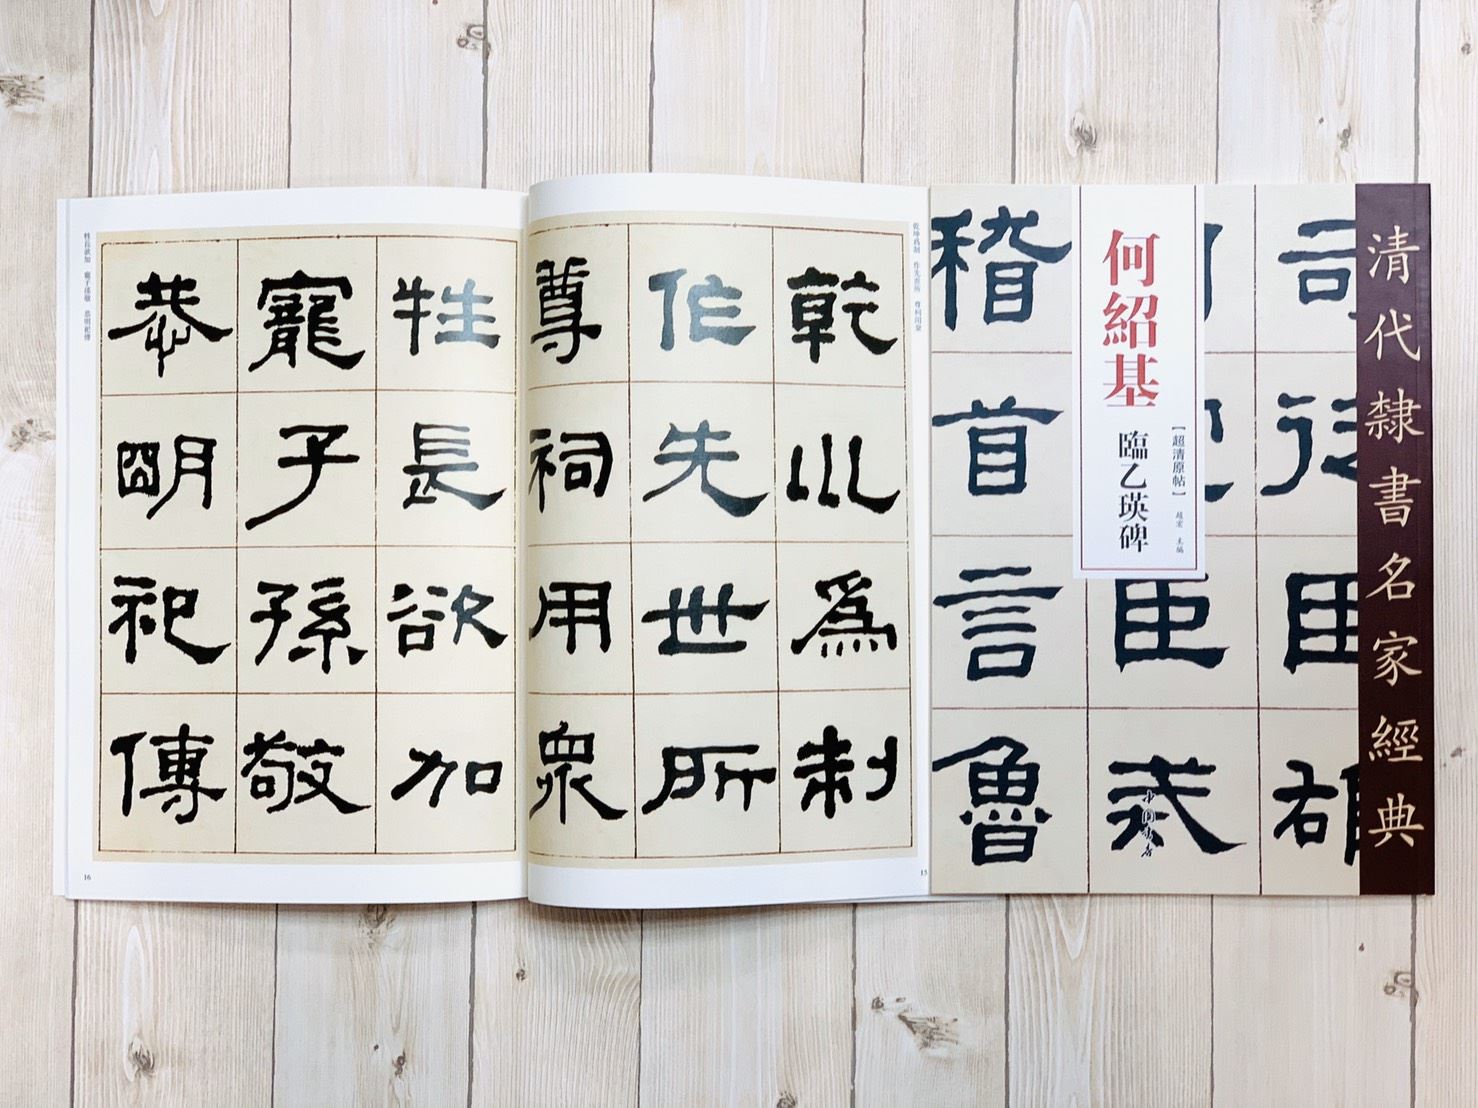 清代隸書名家經典
何紹基
臨乙瑛碑
【超清原帖】
趙宏 主編
司徒臣雄
臣戒
稽首言魯
中國書店
乾坤爲制 作先世所 尊祠用衆
乾巛爲制
作先世所
尊祠用衆
15
牲長欲加
寵子孫敬
恭明祀傳
牲長欲加 寵子孫敬 恭明祀傳
16